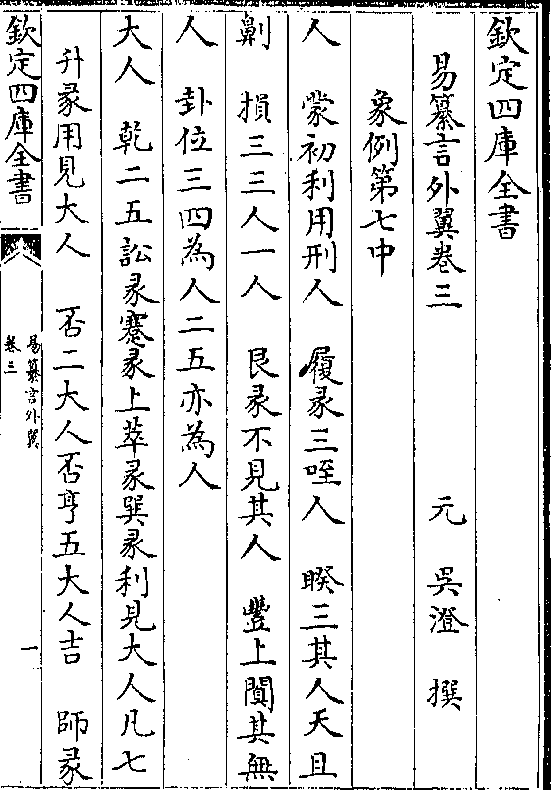 欽定四庫全書
易纂言外翼卷三　元　吳澄　撰
象例第七中
人　蒙初利用刑人　履彖三咥人　睽三其人天且
劓　損三三人一人　艮彖不見其人　豐上闃其無
人　卦位三四為人二五亦為人
大人　乾二五訟彖蹇彖上萃彖巽彖利見大人凡七
升彖用見大人　否二大人否亨五大人吉　師彖
欽定四庫全書
易纂言外翼
卷三
一